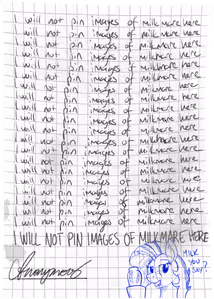 I will not pin images of Milkmare here
I will not pin images of Milkmare here
I will not pin images of Milkmare here
I will not pin images of Milkmare here
I will not pin images of Milkmare here
I will not pin images of Milkmare here
I will not pin images of Milkmare here
I will not pin images of Milkmare here
I will not pin images of Milkmare here
I will not pin images of Milkmare here
I will not pin images of Milkmare here
I will not pin images of Milkmare here
I will not pin images of Milkmare here
I will not pin images of Milkmare here
I will not pin images of Milkmare here
I will not pin images of Milkmare here
I will not pin images of Milkmare here
I will not pin images of Milkmare here
I will not pin images of Milkmare here
I will not pin images of Milkmare here
I WILL NOT PIN IMAGES OF MILKMARE HERE
Anonymous
MILK
YOU
SAY?